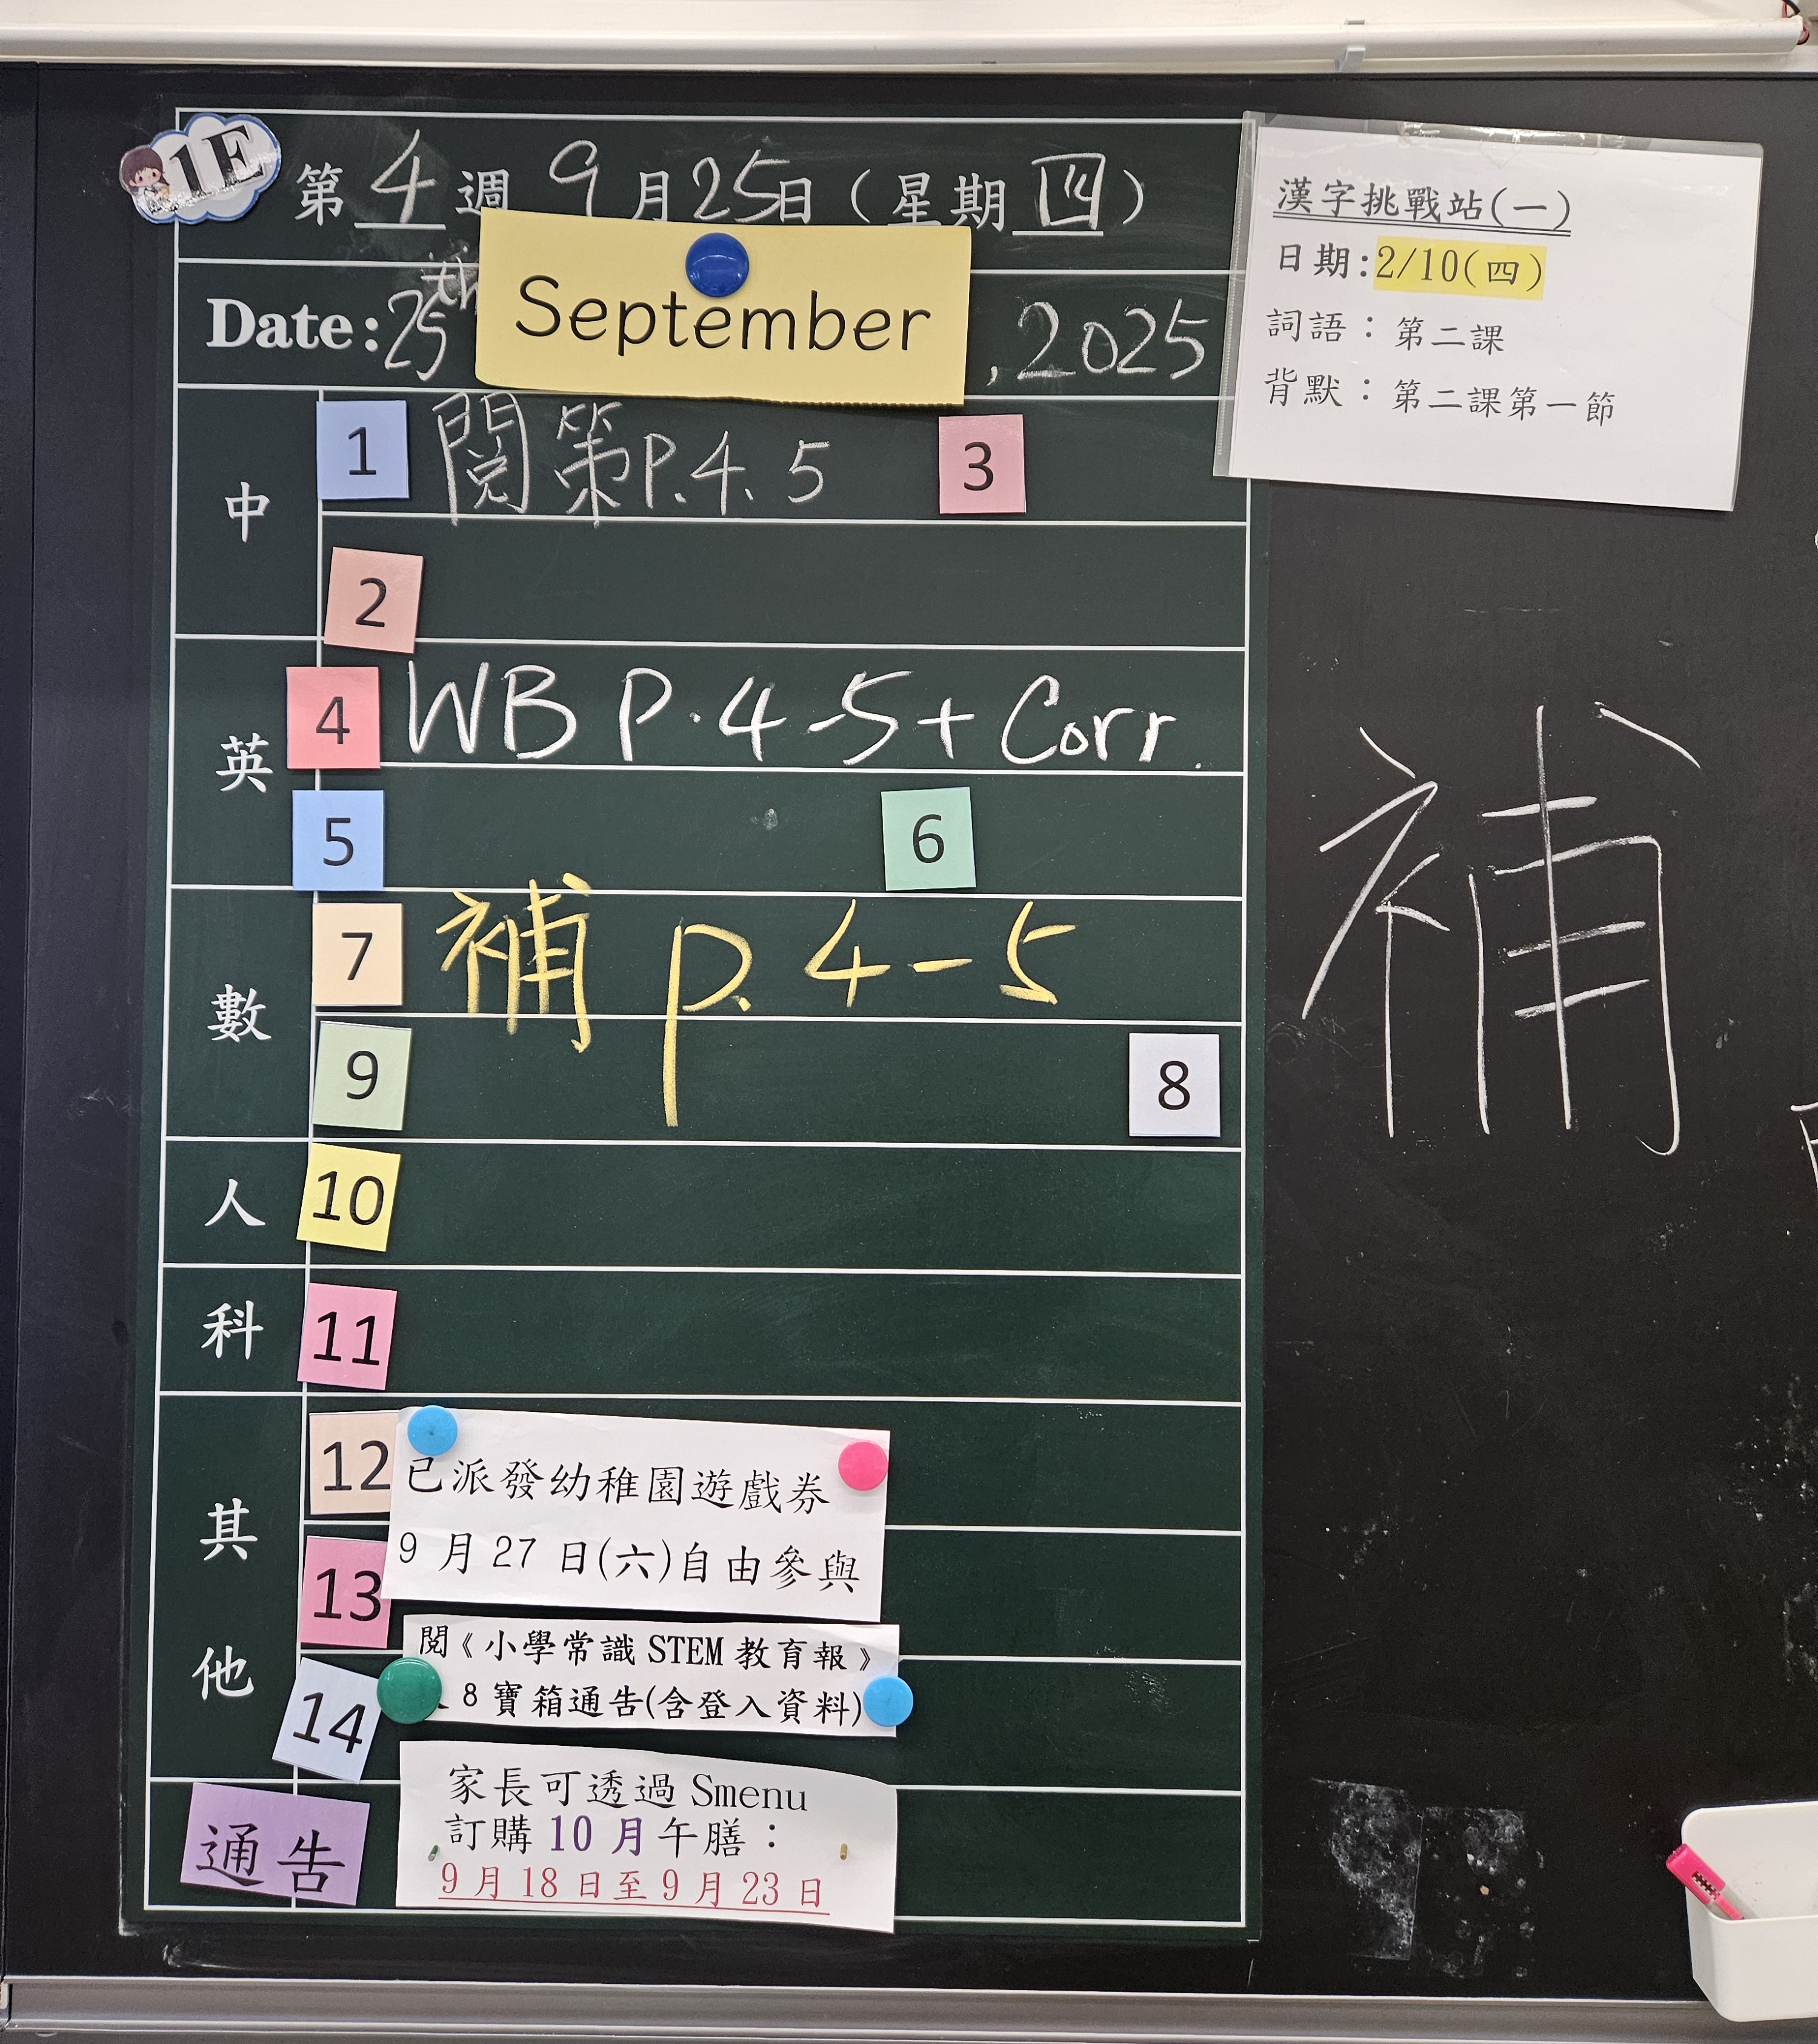 1E
第 4 週 9 月 25 日 ( 星期 四 )
Date: 25th September , 2025
中
1 閱策P.4. 5 3
2
英
4 WB P.4-5+Corr.
5 6
數
7 補 p. 4-5
9 8
人 10
科 11
其他
12 已派發幼稚園遊戲券
13 9 月 27 日(六)自由參與
閱《小學常識 STEM 教育報》
14 8 寶箱通告(含登入資料)
通告
家長可透過 Smenu
訂購 10 月午膳：
9 月 18 日至 9 月 23 日
漢字挑戰站(一)
日期:2/10(四)
詞語：第二課
背默：第二課第一節
補